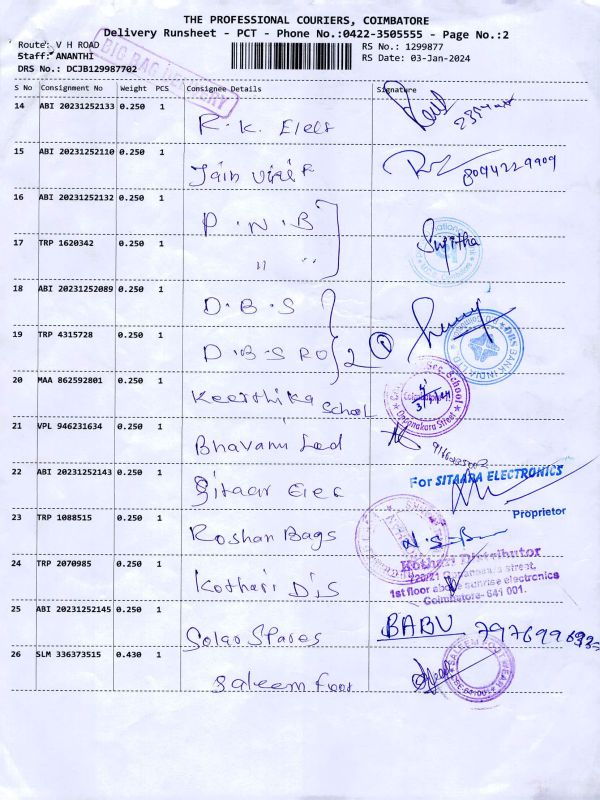 THE PROFESSIONAL COURIERS, COIMBATORE
Delivery Runsheet - PCT - Phone No.:0422-3505555 - Page No.:2
Route: V H ROAD
RS No.: 1299877
Staff: ANANTHI
RS Date: 03-Jan-2024
DRS No.: DCJB129987702
BIG BAG DELIVERY
S No Consignment No Weight PCS Consignee Details Signature
14 ABI 20231252133 0.250 1 R.K. Elect
15 ABI 20231252110 0.250 1 Jain 8094229909
16 ABI 20231252132 0.250 1 P.N.B
17 TRP 1620342 0.250 1 " " Sujitha
18 ABI 20231252089 0.250 1 D.B.S
19 TRP 4315728 0.250 1 D.B.S RO 2 1
DBS BANK INDIA LTD
20 MAA 862592801 0.250 1 Keerthika School
Sec. School
Oppanakara Street
21 VPL 946231634 0.250 1 Bhavani Led
22 ABI 20231252143 0.250 1 Sitaar Elec
For SITAARA ELECTRONICS
Proprietor
23 TRP 1088515 0.250 1 Roshan Bags
24 TRP 2070985 0.250 1 Kothari Dis
Kothari Distributor
street,
1st floor above sunrise electronics
Coimbatore- 641 001.
25 ABI 20231252145 0.250 1 Solar Spares BABU
26 SLM 336373515 0.430 1 Saleem Foot
SALEEM FOOT WEAR